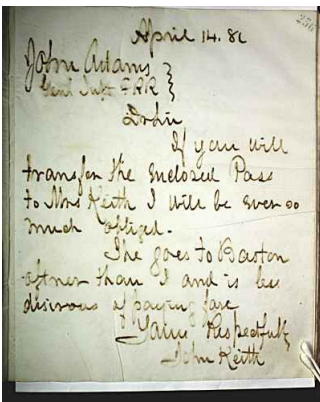 April 14. 82
John Adams }
Genl Supt F.RR }
D. Sir
If you will
transfer the Enclosed Pass
to Mrs Keith I will be ever so
much obliged.
She goes to Boston
oftner than I and is less
disirous of paying fare
Yours Respectfully
John Keith